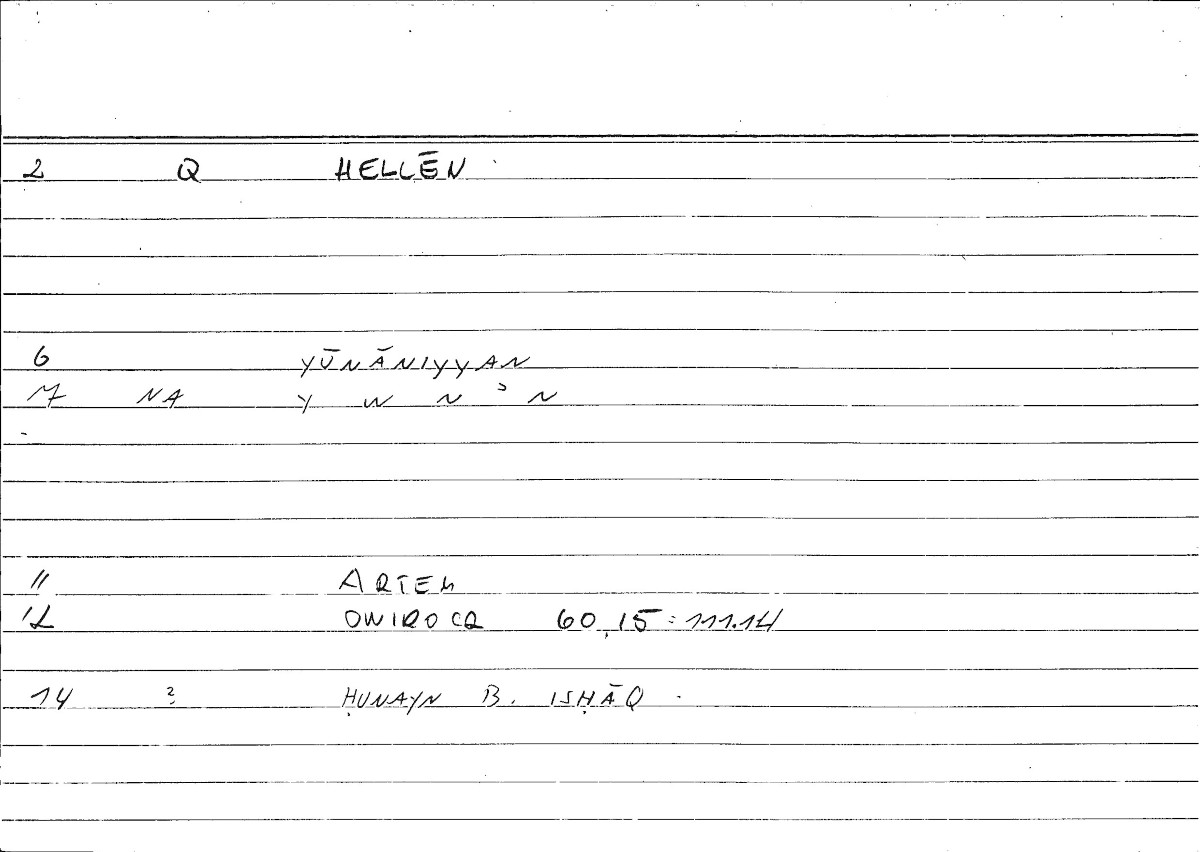 2 Q HELLĒN
6 YŪNĀNIYYAN
7 NA Y W N ʾ N
11 ARTEM
12 ONIROCR 60,15 : 111.14
14 ? ḤUNAYN B. ISḤĀQ